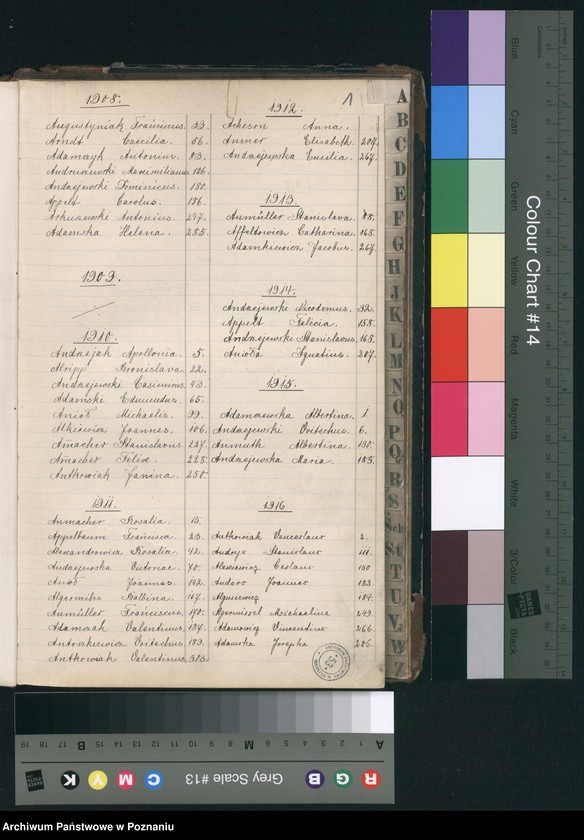 1908.
Augustyniak Franciscus. 33.
Arndt Caecilia. 56.
Adamczyk Antonius. 83.
Andruszewski Maximilianus 186.
Andrzejewski Dominicus. 180.
Appelt Carolus. 186.
Antonius. 247.
Adamska Helena. 285.
1909.
1910.
Andrzejak Apollonia. 5.
Bronislava 22.
Andrzejewski Casimirus. 43.
Adamski Edmundus. 65.
Anioł Michaelis. 99.
Alkiewicz Joannes. 106.
Amacher Stanislavus. 227.
Amacher Felix. 228.
Antkowiak Janina. 250.
1911.
Anmacher Rosalia. 15.
Appelbaum Francisca. 23.
Alexandrowicz Rosalia. 42.
Andrzejewska Victoriae. 70.
Anioł Joannes. 142.
Balbina. 167.
Anmüller Franciscus. 170.
Adamczak Valentinus. 184.
Antoszkiewicz Vitechus. 189.
Antkowiak Valentinus. 303.
1
1912.
Acheson Anna.
Ansner Elisabeth 207.
Andrzejewska Cecilia. 267.
1913.
Anmüller Stanislava. 85.
Affeltowicz Catharina 168.
Adamkiewicz Jacobus. 267.
1914.
Andrzejewski Nicodemus. 32.
Appelt Felicia. 158.
Andrzejewski Stanislavus. 168.
Anioła Ignatius. 207.
1915.
Adamczewska Albertina. 1
Andrzejewski Vitechus. 6.
Anmuth Albertina. 130.
Andrzejewska Maria. 185.
1916
Antkowiak Venceslaus 2.
Andryx Stanislaus 111.
Ceslaus 150
Anders Joannes 183.
184.
Michaelina 249.
Adamowicz Vincentius 266.
Adamska Josepha 206.
A
B
C
D
E
F
G
H
J
K
L
M
N
O
P
Q
R
S
Sch
St
T
U
V
W
Z
Colour Chart #14
Blue
Cyan
Green
Yellow
Red
Magenta
White
3/Color
Black
Centimetres
Inches
DANES
PICTA
R G B Grey Scale #13 C M Y K
A 1 2 3 4 5 6 M 8 9 10 11 12 13 14 15 B 17 18 19
Archiwum Państwowe w Poznaniu